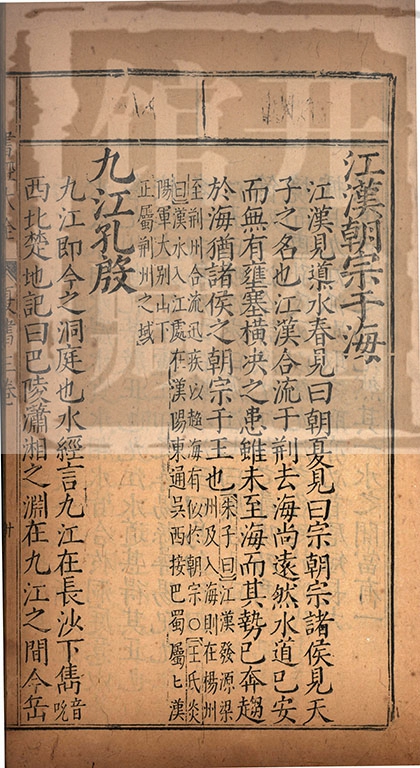 江漢朝宗于海
江漢見導水春見曰朝夏見曰宗朝宗諸侯見天
子之名也江漢合流于荆去海尚遠然水道已安
而無有壅塞橫决之患雖未至海而其勢已奔趨
於海猶諸侯之朝宗于王也
朱子曰江漢發源梁
州及入海則在楊州
至荆州合流迅疾以趨海有似於朝宗○王氏炎
曰漢水入江處在漢陽東通吳西按巴蜀屬七漢
陽軍大别山下
正屬荆州之域
九江孔殷
九江即今之洞庭也水經言九江在長沙下雋
音
吮
西北楚地記曰巴陵瀟湘之淵在九江之間今岳